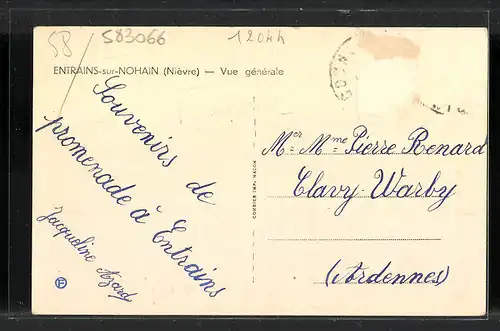 58 583066 12044
ENTRAINS-sur-NOHAIN (Nièvre) — Vue générale
Souvenirs de
promenade à Entrains
Jacqueline Azard
CORDIER IMP. MACON
Mer Mme Pierre Renard
Clavy-Warby
(Ardennes)